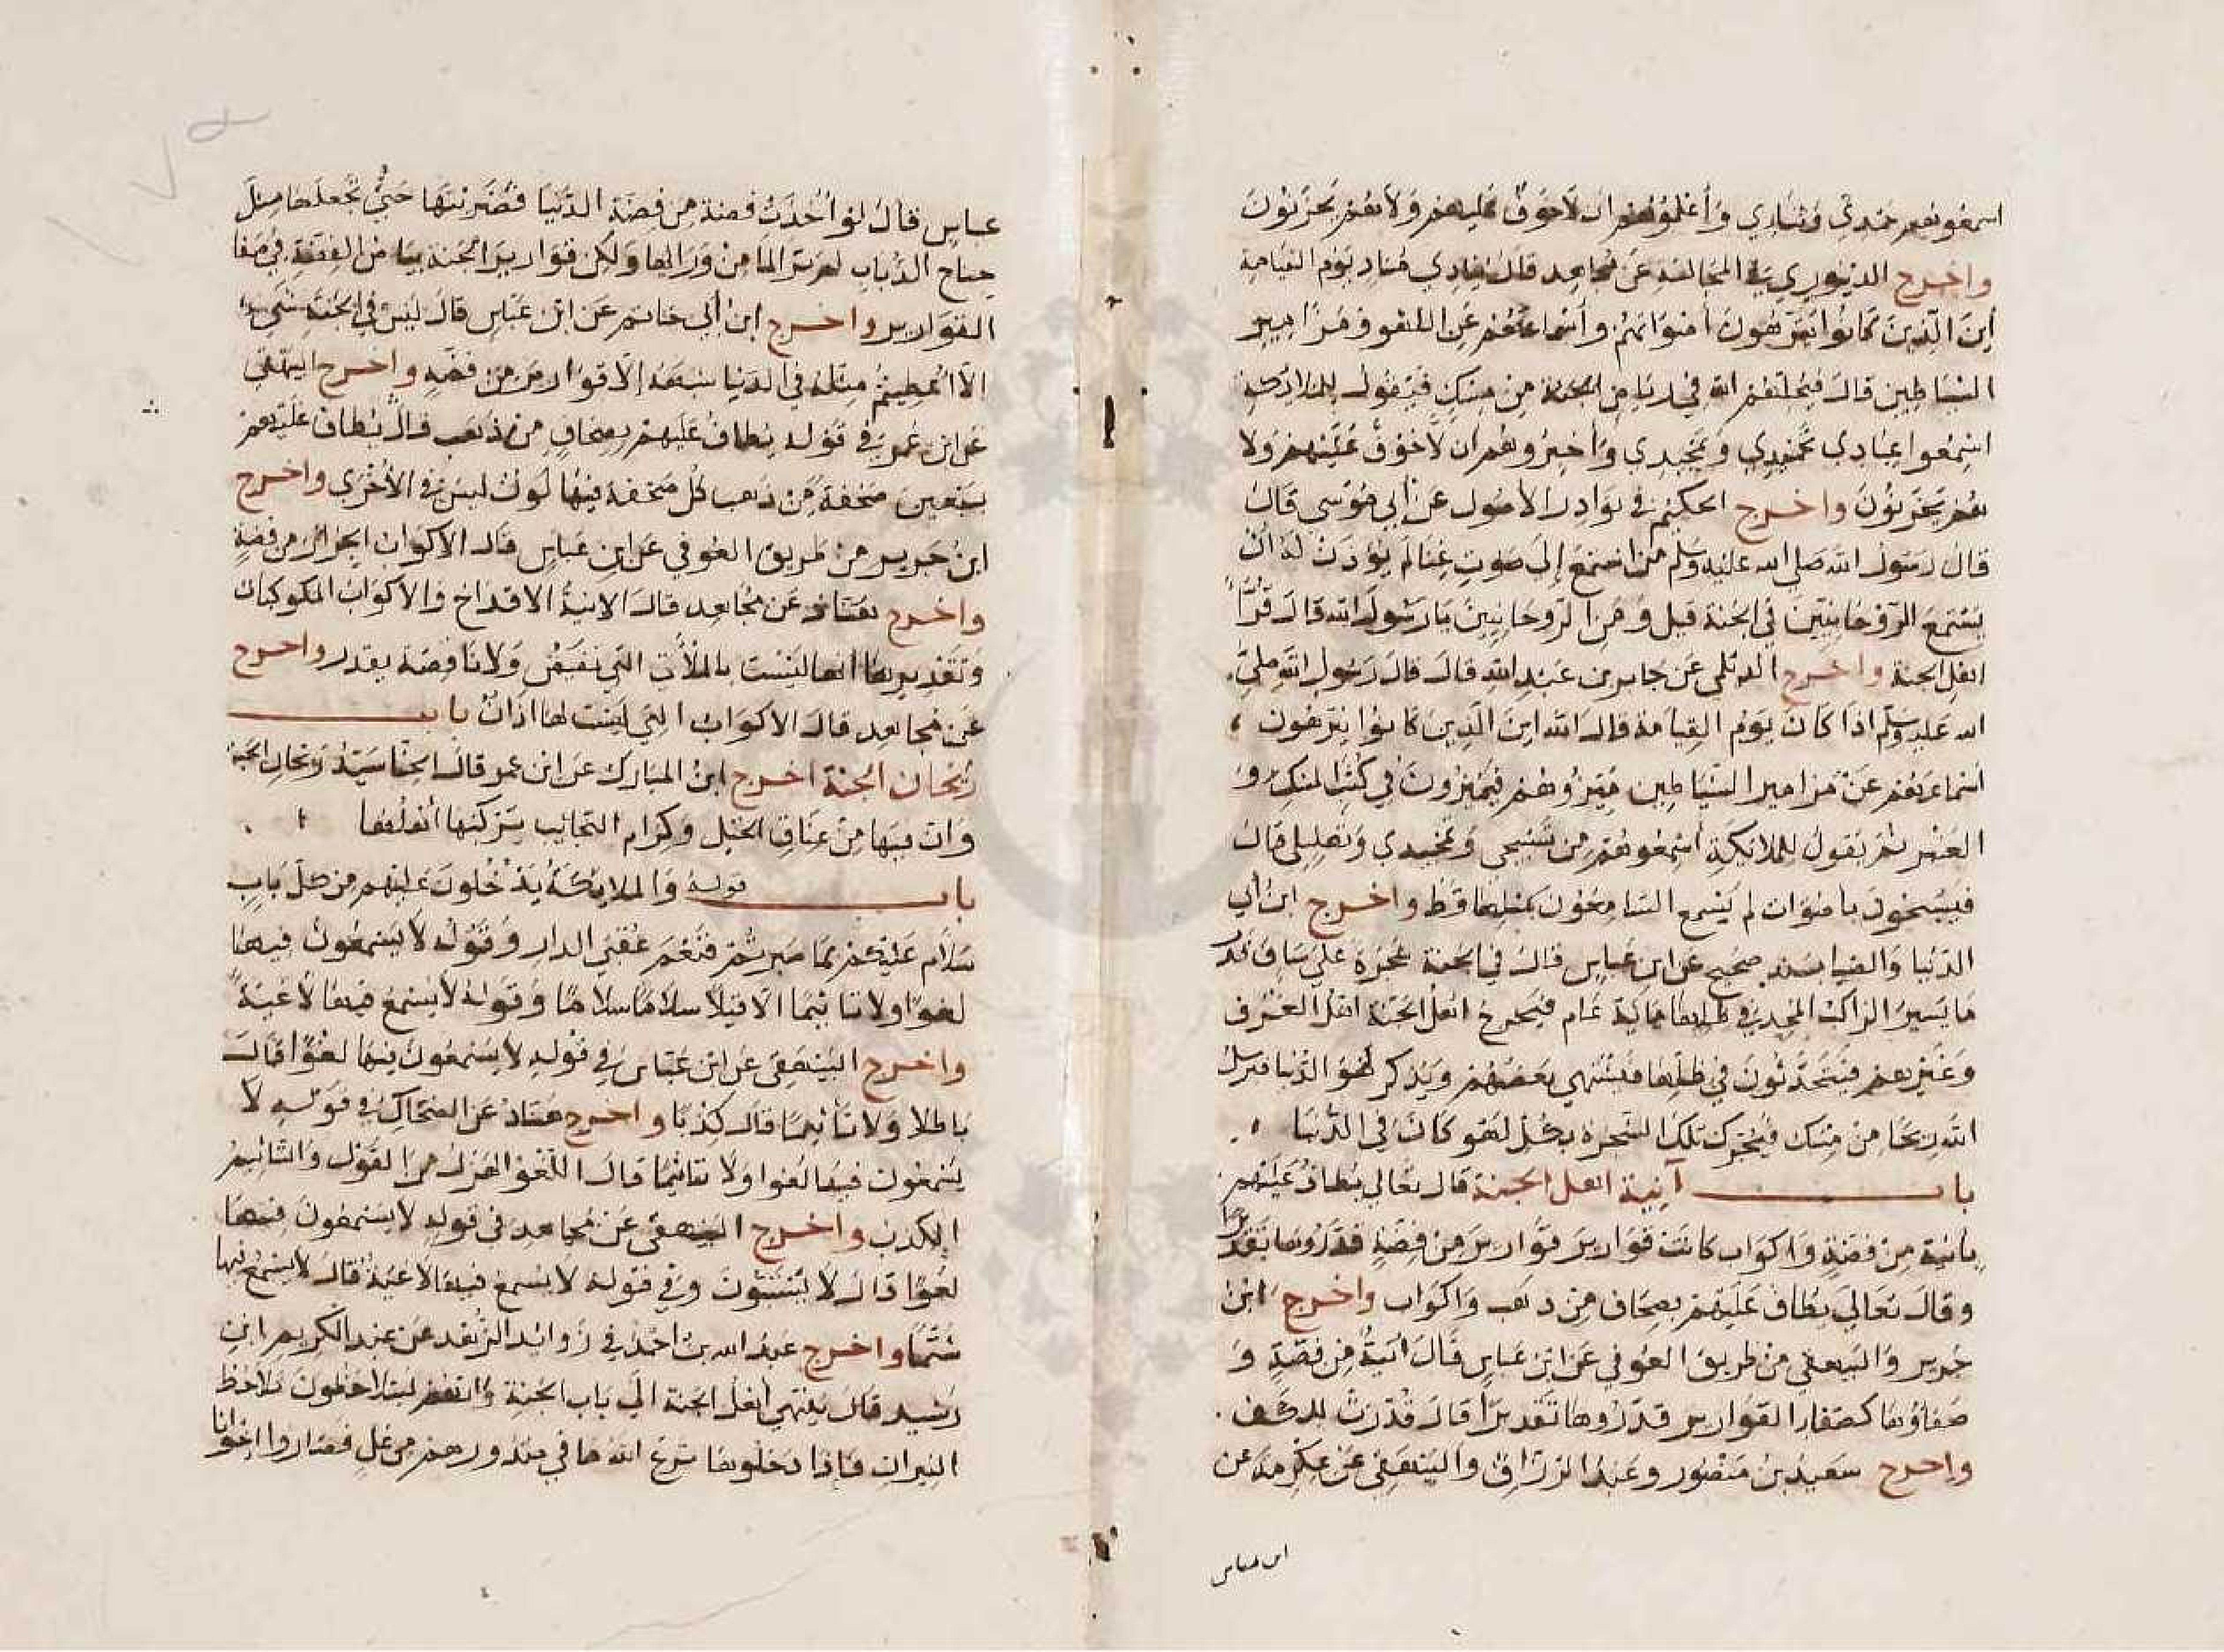 اسمعوهم حمدي وثنائي وأعلموهم ان لاخوف عليهم ولاهم يحزنون
واخرج الدينوري في المجالسة عن مجاهد قال ينادي مناد يوم القيامة
اين الذين كانوا ينزهون أصواتهم وأسماعهم عن اللهو ومزامير
الشياطين قال فيحلهم الله في رياض الجنة من مسك فيقول للملائكة
اسمعوا عبادي تحميدي وتمجيدي وأخبروهم ان لاخوف عليهم ولا
هم يحزنون واخرج الحكيم في نوادر الأصول عن أبي موسي قال
قال رسول الله صلي الله عليه وسلم من استمع إلى صوت غنا لم يؤذن له ان
يستمع الروحانيين في الجنة قيل ومن الروحانيين يا رسول الله قال قرا
اهل الجنة واخرج الديلمي عن جابر بن عبد الله قال قال رسول الله صلي
الله عليه وسلم اذا كان يوم القيامة قال الله اين الذين كانوا ينزهون
أسماعهم عن مزامير الشياطين ميزوهم فيميزون في كثب المسك و
العنبر ثم يقول للملائكة أسمعوهم من تسبيحي وتمجيدي وتهليلي قال
فيسبحون باصوات لم يسمع السامعون بمثلها قط واخرج ابن أبي
الدنيا والضيا بسند صحيح عن ابن عباس قال في الجنة شجرة علي ساق قدر
ما يسير الراكب المجد في ظلها مائة عام فيخرج اهل الجنة اهل الغرف
وغيرهم فيتحدثون في ظلها فيشتهي بعضهم ويذكر لهو الدنيا فيرسل
الله ريحا من مسك فيحرك تلك الشجرة بكل لهو كان في الدنيا
باب آنية اهل الجنة قال تعالي يطاف عليهم
بانية من فضة واكواب كانت قوارير قوارير من فضة قدروها تقديرا
وقال تعالي يطاف عليهم بصحاف من ذهب واكواب واخرج ابن
جرير والبيهقي من طريق العوفي عن ابن عباس قال انية من فضة و
صفاؤها كصفاء القوارير قدروها تقديرا قال قدرت للكف
واخرج سعيد بن منصور وعبد الرزاق والبيهقي عن عكرمة عن
ابن عباس
عباس قال لو أخذت فضة من فضة الدنيا فضربتها حتي تجعلها مثل
جناح الذباب لم ير الما من ورائها ولكن قوارير الجنة بياض الفضة في صفا
القوارير واخرج ابن أبي حاتم عن ابن عباس قال ليس في الجنة شي
الا اعطيتم مثله في الدنيا شبهه إلا قوارير من فضة واخرج البيهقي
عن ابن عمر في قوله يطاف عليهم بصحاف من ذهب قال يطاف عليهم
بسبعين صحفة من ذهب كل صحفة فيها لون ليس في الأخرى واخرج
ابن جرير من طريق العوفي عن ابن عباس قال الاكواب الجرار من فضة
واخرج هناد عن مجاهد قال الانية الاقداح والاكواب المكوكبات
وتقديرها انها ليست بالملأي التي تفيض ولا ناقصة بقدر واخرج
عن مجاهد قال الاكواب التي ليست لها اذان باب
ريحان الجنة اخرج ابن المبارك عن ابن عمر قال الحنا سيد ريحان الجنة
وان فيها من عتاق الخيل وكرام النجائب يركبها أهلها
باب قوله والملائكة يدخلون عليهم من كل باب
سلام عليكم بما صبرتم فنعم عقبي الدار وقوله لا يسمعون فيها
لغوا ولا تاثيما الا قيلا سلاما سلاما وقوله لا يسمع فيها لاغية
واخرج البيهقي عن ابن عباس في قوله لا يسمعون فيها لغوا قال
باطلا ولا تأثيما قال كذبا واخرج هناد عن الضحاك في قوله لا
يسمعون فيها لغوا ولا تاثيما قال اللغو الهزل من القول والتاثيم
الكذب واخرج البيهقي عن مجاهد في قوله لا يسمعون فيها
لغوا قال لا يستبون وفي قوله لا يسمع فيها لاغية قال لا يسمع فيها
شتما واخرج عبد الله بن احمد في زوائد الزهد عن عبد الكريم ابن
رشيد قال ينتهي أهل الجنة الي باب الجنة وانهم ليتلاحظون تلاحظ
النيران فاذا دخلوها نزع الله ما في صدورهم من غل فصاروا اخوانا